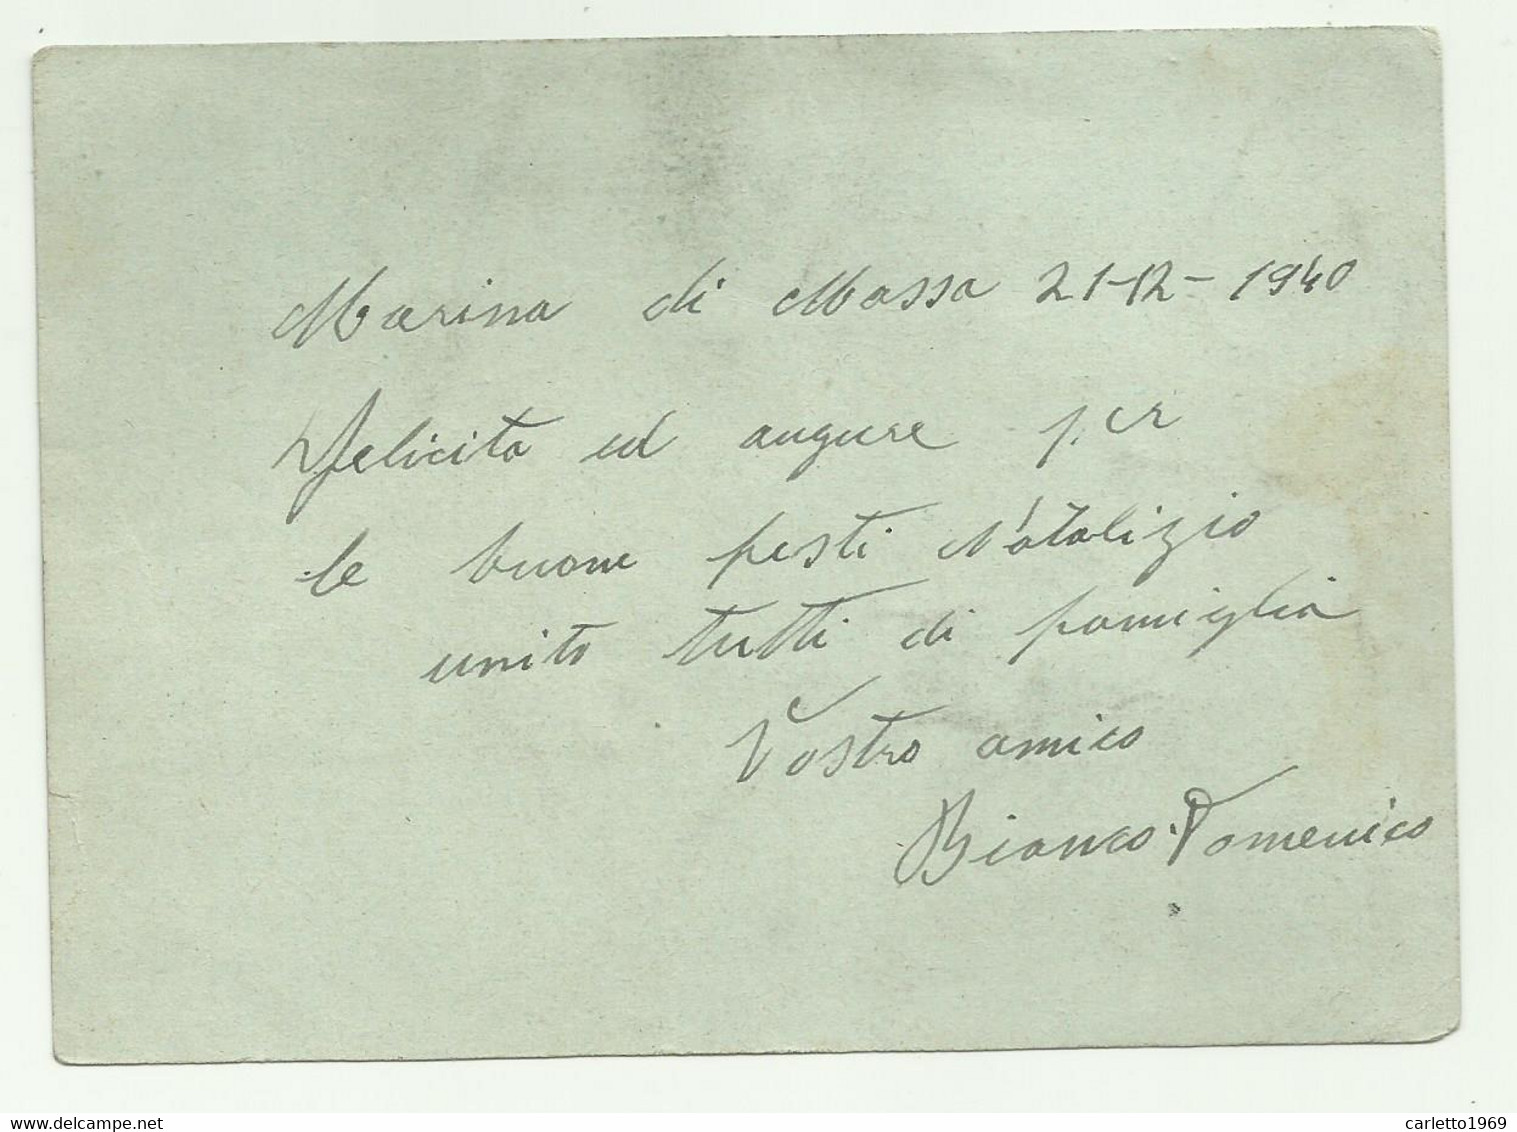 Marina di Massa 21-12-1940
Felicita ed augure per
le buone festi Natalizio
unito tutti di famiglia
Vostro amico
Bianco Domenico
delcampe.net
carletto1969